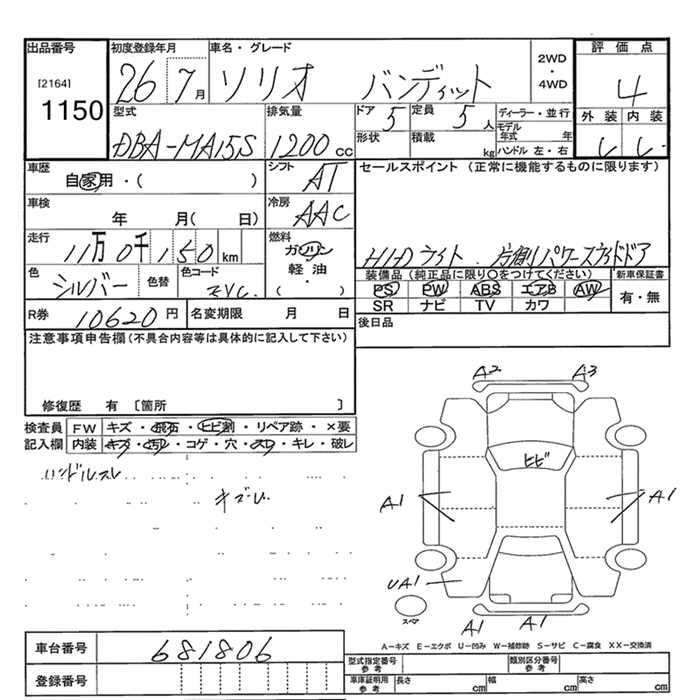 出品番号 初度登録年月 車名・グレード 2WD・4WD 評価点
[2164] 1150 26 7月 ソリオ バンディット 4
型式 排気量 ドア 5 定員 5人 ディーラー・並行 外装 内装
DBA-MA15S 1200cc 形状 積載 kg モデル年式 年 ハンドル 左・右
車歴 シフト セールスポイント (正常に機能するものに限ります)
自家用・( ) AT
車検 冷房
年 月( 日) AAC
走行 燃料
11万0千150km ガソリン HIDライト 片側パワースライドドア
色 シルバー 色替 色コード ZVC 軽油・( )
装備品 (純正品に限り○をつけてください) 新車保証書
PS PW ABS エアB AW 有・無
SR ナビ TV カワ
R券 10620円 名変期限 月 日 後日品
注意事項申告欄(不具合内容等は具体的に記入して下さい)
修復歴 有 〔箇所 〕
検査員 FW キズ・飛石・ヒビ割・リペア跡・×要
記入欄 内装 キズ・汚レ・コゲ・穴・スレ・キレ・破レ
ハンドルスレ
A2 A3
ヒビ
A1 A1
UA1
スペア
A1 A1
A－キズ E－エクボ U－凹み W－補修跡 S－サビ C－腐食 XX－交換済
車台番号 681806
型式指定番号 参考 類別区分番号 参考
登録番号 車庫証明用 参考 長さ cm 幅 cm 高さ cm